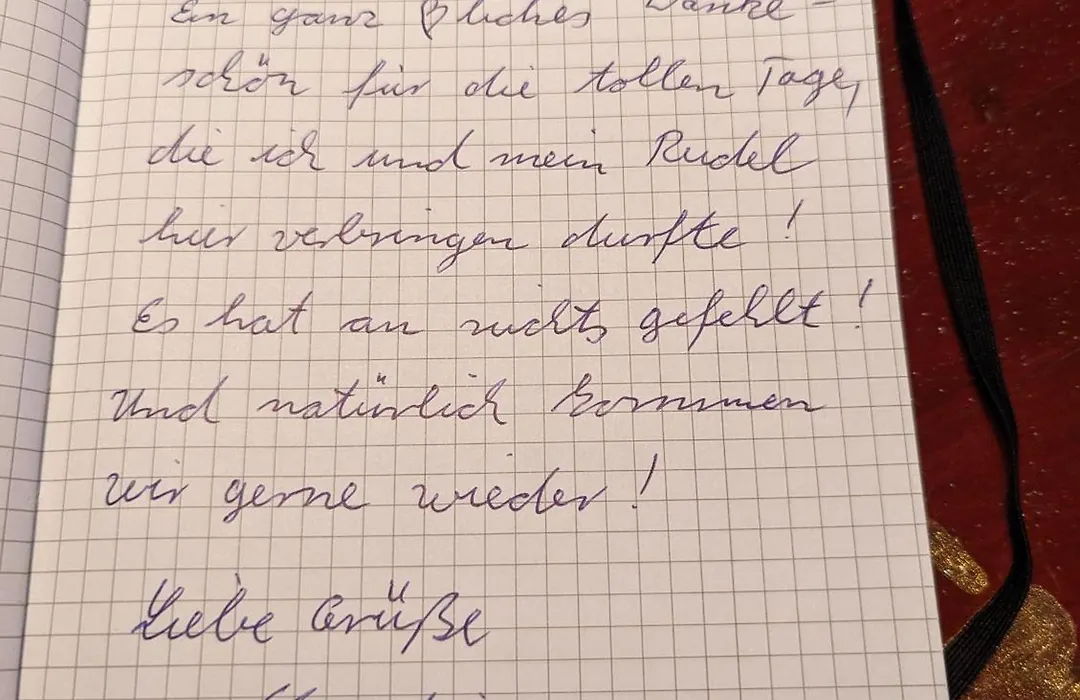 Ein ganz liches Danke-
schön für die tollen Tage,
die ich und mein Rudel
hier verbringen durfte!
Es hat an nichts gefehlt!
Und natürlich kommen
wir gerne wieder!
Liebe Grüße